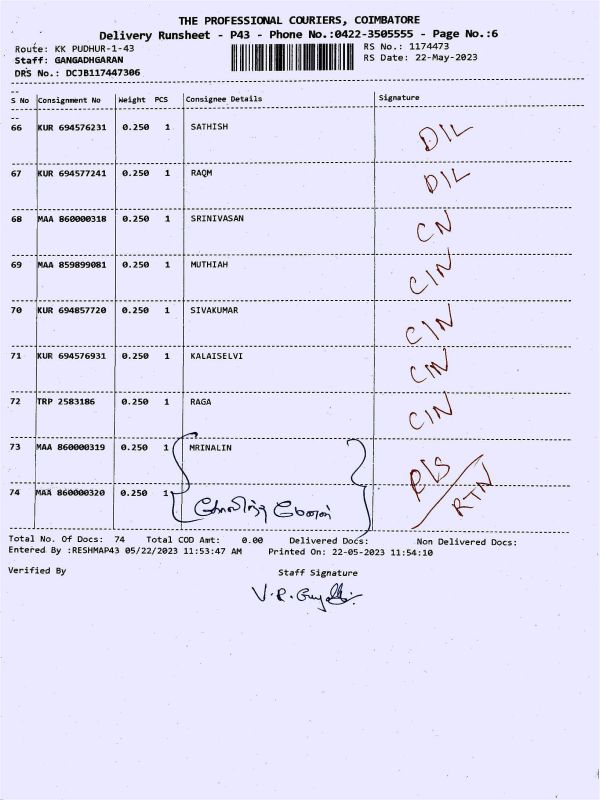 THE PROFESSIONAL COURIERS, COIMBATORE
Delivery Runsheet - P43 - Phone No.:0422-3505555 - Page No.:6
Route: KK PUDHUR-1-43
RS No.: 1174473
Staff: GANGADHGARAN
RS Date: 22-May-2023
DRS No.: DCJB117447306
S No Consignment No Weight PCS Consignee Details Signature
66 KUR 694576231 0.250 1 SATHISH D/L
67 KUR 694577241 0.250 1 RAQM D/L
68 MAA 860000318 0.250 1 SRINIVASAN C/N
69 MAA 859899081 0.250 1 MUTHIAH C/N
70 KUR 694857720 0.250 1 SIVAKUMAR C/N
71 KUR 694576931 0.250 1 KALAISELVI C/N
72 TRP 2583186 0.250 1 RAGA C/N
73 MAA 860000319 0.250 1 MRINALIN
74 MAA 860000320 0.250 1 RTN
Total No. Of Docs: 74 Total COD Amt: 0.00 Delivered Docs: Non Delivered Docs:
Entered By :RESHMAP43 05/22/2023 11:53:47 AM Printed On: 22-05-2023 11:54:10
Verified By Staff Signature